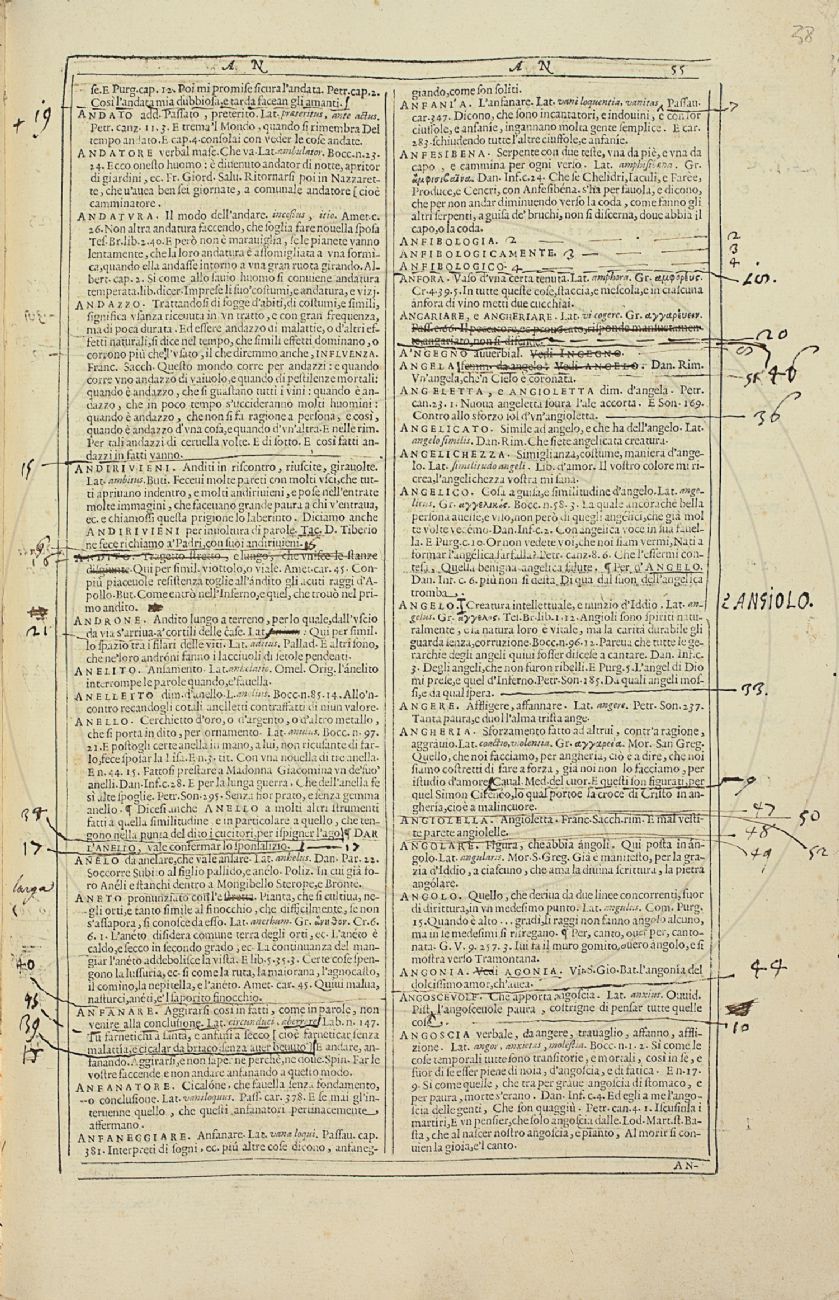 38
A N A N 55
se. E Purg. cap. 12. Poi mi promise sicura l'andata. Petr. cap. 2.
Così l'andata mia dubbiosa, e tarda facean gli amanti.
ANDATO add. Passato, preterito. Lat. praeteritus, ante actus.
Petr. canz. 11. 3. E trema 'l Mondo, quando si rimembra Del
tempo andato. E cap. 4. consolai con veder le cose andate.
ANDATORE verbal masc. Che va. Lat. ambulator. Bocc. n. 23.
24. Ecco onesto huomo: è divenuto andator di notte, apritor
di giardini, ec. Fr. Giord. Salu. Ritornarsi poi in Nazzaret-
te, che v'avea ben sei giornate, a comunale andatore [cioè
camminatore.
ANDATVRA. Il modo dell'andare. incessus, itio. Amet. c.
26. Non altra andatura faccendo, che soglia fare nouella sposa
Tes. Br. lib. 2. 40. E però non è marauiglia, se le pianete vanno
lentamente, che la loro andatura è assomigliata a vna formi-
ca, quando ella andasse intorno a vna gran ruota girando. Al-
bert. cap. 2. Sì come al sauio huomo si conuiene andatura
temperata. lib. dicer. Imprese li suo' costumi, e andatura, e vizj.
ANDAZZO. Trattandosi di fogge d'abiti, di costumi, e simili,
significa vsanza riceuuta in vn tratto, e con gran frequenza,
ma di poca durata. Ed essere andazzo di malattie, o d'altri ef-
fetti naturali, si dice nel tempo, che simili effetti dominano, o
corrono più che l'vsato, il che diremmo anche, INFLVENZA.
Franc. Sacch. Questo mondo corre per andazzi: e quando
corre vno andazzo di vaiuolo, e quando di pestilenze mortali:
quando è andazzo, che si guastano tutti i vini: quando è an-
dazzo, che in poco tempo s'uccideranno molti huomini:
quando è andazzo, che non si fa ragione a persona, e così,
quando è andazzo d'vna cosa, e quando d'vn'altra. E nelle rim.
Per tali andazzi di ceruella volte. E di sotto. E così fatti an-
dazzi in fatti vanno.
ANDIRIVIENI. Anditi in riscontro, riuscite, girauolte.
Lat. ambitus. Buti. Feceui molte pareti con molti vsci, che tut-
ti apriuano indentro, e molti andiriuieni, e pose nell'entrate
molte immagini, che faceuano grande paura a chi v'entraua,
ec. e chiamossi questa prigione lo laberinto. Diciamo anche
ANDIRIVIENI per inuoltura di parole. Tac. D. Tiberio
ne fece richiamo a' Padri, con suoi andiriuieni.
ANDITO. Tragetto stretto, e lungo, che vnisce le stanze
disgiunte. Qui per simil. viottolo, o viale. Amet. car. 45. Con-
più piaceuole resistenza toglie all'ándito gli acuti raggi d'A-
pollo. But. Come entrò nell'Inferno, e quel, che trouò nel pri-
mo andito.
ANDRONE. Andito lungo a terreno, per lo quale, dall'vscio
da via s'arriua a' cortili delle case. Lat. : Qui per simil.
lo spazio tra i filari delle viti. Lat. aditus. Pallad. E altri sono,
che ne' loro andróni fanno i lacciuoli di setole pendenti.
ANELITO. Ansamento. Lat. anhelatio. Omel. Orig. l'ánelito
interrompe le parole quando, e' fauella.
ANELLETTO dim. d'anello. L. anellus. Bocc. n. 85. 14. Allo 'n-
contro recandogli cotali anelletti contraffatti di niun valore.
ANELLO. Cerchietto d'oro, o d'argento, o d'altro metallo,
che si porta in dito, per ornamento. Lat. anulus. Bocc. n. 97.
21. E postogli certe anella in mano, a lui, non ricusante di far-
lo, fece sposar la Lisa. E n. 3. tit. Con vna nouella di tre anella.
E n. 44. 15. Fattosi prestare a Madonna Giacomina vn de' suo'
anelli. Dan. Inf. c. 28. E per la lunga guerra. Che dell'anella fe
sì alte spoglie. Petr. Son. 295. Senz'hor prato, e senza gemma
anello. ¶ Dicesi anche ANELLO a molti altri strumenti
fatti a quella similitudine e in particolare a quello, che ten-
gono nella punta del dito i cucitori, per ispigner l'ago ¶ DAR
L'ANELLO, vale confermar lo sponsalizio. 17
ANELO da anelare, che vale ansare. Lat. anhelus. Dan. Par. 22.
Soccorre Subito al figlio pallido, e anélo. Poliz. In cui già fo-
ro Anéli e stanchi dentro a Mongibello Sterope, e Bronte.
ANETO pronunziato coll'e stretta. Pianta, che si cultiua, ne-
gli orti, e tanto simile al finocchio, che difficilmente, se non
s'assapora, si conosce da esso. Lat. anethum. Gr. ἄνηθον. Cr. 6.
6. 1. L'anéto disidera comune terra degli orti, ec. L'anéto è
caldo, e secco in secondo grado, ec. La continuanza del man-
giar l'anéto addebolisce la vista. E lib. 5. 35. 3. Certe cose spen-
gono la lussuria, ec. sì come la ruta, la maiorana, l'agnocasto,
il comino, la nepitella, e l'anéto. Amet. car. 45. Quiui malua,
nasturci, anéti, e 'l saporito finocchio.
ANFANARE. Aggirarsi così in fatti, come in parole, non
venire alla conclusione. Lat. circunduci, aberrare. Lab. n. 147.
Tu farnetichi a santà, e anfani a secco [cioè farneticar senza
malattia, e cicalar da briaco senza auer beuuto] E andare, an-
fanando. Aggirarsi, e non saper ne perchè, ne doue. Spin. Far le
vostre faccende e non andare anfanando a questo modo.
ANFANATORE. Cicalóne, che fauella senza fondamento,
o conclusione. Lat. vaniloquus. Pass. car. 378. E se mai gl'in-
teruenne quello, che questi anfanatori pertinacemente
affermano.
ANFANEGGIARE. Anfanare. Lat. vana loqui. Passau. cap.
381. Interpreti di sogni, ec. più altre cose dicono, anfaneg-
giando, come son soliti.
ANFANÍA. L'anfanare. Lat. vaniloquentia, vanitas. Passau.
car. 347. Dicono, che sono incantatori, e indouini, e con lor
ciuffole, e anfanie, ingannano molta gente semplice. E car.
283. schiudendo tutte l'altre ciuffole, e anfanie.
ANFESIBENA. Serpente con due teste, vna da piè, e vna da
capo, e cammina per ogni verso. Lat. amphisibena. Gr.
ἀμφίσβαινα. Dan. Inf. c. 24. Che se Chelidri, Iaculi, e Farèe,
Produce, e Cencri, con Anfesibéna. s'ha per fauola, e dicono,
che per non andar diminuendo verso la coda, come fanno gli
altri serpenti, a guisa de' bruchi, non si discerna, doue abbia il
capo, o la coda.
ANFIBOLOGIA. 2
ANFIBOLOGICAMENTE. 3
ANFIBOLOGICO. 4
ANFORA. Vaso d'vna certa tenuta. Lat. amphora. Gr. ἀμφορεύς.
Cr. 4. 39. 5. In tutte queste cose, staccia, e mescola, e in ciascuna
ánfora di vino metti due cucchiai.
ANGARIARE, e ANGHERIARE. Lat. vi cogere. Gr. ἀγγαρεύειν.
Pass. c. 66. Il peccatore, ec. prouocato, risponde mansuetamen-
te, angariato, non si difende.
A'NGEGNO auuerbial. Vedi INGEGNO.
ANGELA femm. da angelo. Vedi ANGELO. Dan. Rim.
Vn'angela, che 'n Cielo è coronata.
ANGELETTA, e ANGIOLETTA dim. d'angela. Petr.
can. 23. 1. Nuoua angeletta soura l'ale accorta. E Son. 169.
Contro allo sforzo sol d'vn'angioletta.
ANGELICATO. Simile ad angelo, e che ha dell'angelo. Lat.
angelo similis. Dan. Rim. Che siete angelicata creatura.
ANGELICHEZZA. Simiglianza, costume, maniera d'ange-
lo. Lat. similitudo angeli. Lib. d'amor. Il vostro colore mi ri-
crea, l'angelichezza vostra mi sana.
ANGELICO. Cosa a guisa, e similitudine d'angelo. Lat. ange-
licus. Gr. ἀγγελικός. Bocc. n. 58. 3. La quale ancorachè bella
persona auesse, e viso, non però di quegli angélici, che già mol
te volte vedemo. Dan. Inf. c. 2. Con angelica voce in sua fauel-
la. E Purg. c. 10. Or non vedete voi, che noi siam vermi, Nati a
formar l'angélica farfalla? Petr. canz. 8. 6. Che l'essermi con-
tesa Quella benigna angelica salute. ¶ Per, d'ANGELO.
Dan. Inf. c. 6. più non si desta. Di qua dal suon dell'angelica
tromba.
ANGELO. Creatura intellettuale, e nunzio d'Iddio. Lat. an-
gelus. Gr. ἄγγελος. Tes. Br. lib. 1. 12. Angioli sono spiriti natu-
ralmente, e la natura loro è vitale, ma la carità durabile gli
guarda senza, corruzione. Bocc. n. 96. 12. Pareua che tutte le ge-
rarchie degli angeli quiui fosser discese a cantare. Dan. Inf. c.
3. Degli angeli, che non furon ribelli. E Purg. 5. L'angel di Dio
mi prese, e quel d'Inferno. Petr. Son. 285. Da quali angeli mos-
si, e da qual spera.
ANGERE. Affligere, affannare. Lat. angere. Petr. Son. 237.
Tanta paura, e duol l'alma trista ange.
ANGHERIA. Sforzamento fatto ad altrui, contr'a ragione,
aggrauio. Lat. coactio, violentia. Gr. ἀγγαρεία. Mor. San Greg.
Quello, che noi facciamo, per angherìa, ciò è a dire, che noi
siamo costretti di fare a forza, già noi non lo facciamo, per
istudio d'amore, Caual. Med. del cuor. E questi son figurati, per
quel Simon Cireneo, lo qual portoe la croce di Cristo in an-
gherìa, cioè a malincuore.
ANGIOLELLA. Angioletta. Franc. Sacch. rim. E mal vesti-
te parete angiolelle.
ANGOLARE. Figura, che abbia ángoli. Qui posta in án-
golo. Lat. angularis. Mor. S. Greg. Già è manifesto, per la gra-
zia d'Iddio, a ciascuno, che ama la diuina scrittura, la pietra
angólare.
ANGOLO. Quello, che deriua da due linee concorrenti, fuor
di dirittura, in vn medesimo punto. Lat. angulus. Com. Purg.
15. Quando è alto... gradi, li raggi non fanno angolo alcuno,
ma in se medesimi si rifregano. ¶ Per, canto, ouer per, canto-
nata. G. V. 9. 257. 3. lui fa il muro gomito, ouero ángolo, e si
mostra verso Tramontana.
ANGONIA. Vedi AGONIA. Vit. S. Gio. Bat. l'angonia del
dolcissimo amor, ch'auea.
ANGOSCEVOLE. Che apporta angoscia. Lat. anxius. Ouuid.
Pist. l'angosceuole paura, costrigne di pensar tutte quelle
cose.
ANGOSCIA verbale, da angere, trauaglio, affanno, affli-
zione. Lat. angor, anxietas, molestia. Bocc. n. 1. 2. Sì come le
cose temporali tutte sono transitorie, e mortali, così in sè, e
fuor di se esser piene di noia, d'angoscia, e di fatica. E n. 17.
9. Sì come quelle, che tra per graue angoscia di stomaco, e
per paura, morte s'erano. Dan. Inf. c. 4. Ed egli a me l'ango-
scia delle genti, Che son quaggiù. Petr. can. 4. 1. Iscusinsi i
martìri, E vn pensier, che solo angoscia dalle. Lod. Mart. st. Ba-
sta, che al nascer nostro angoscia, e pianto, Al morir si con-
uien la gioia, e 'l canto.
AN-
+ 19
15
21
38
17
larga
40
39
7
2
3
4
20
46
36
2 ANGIOLO.
33
9
47
48
49
50
52
44
10